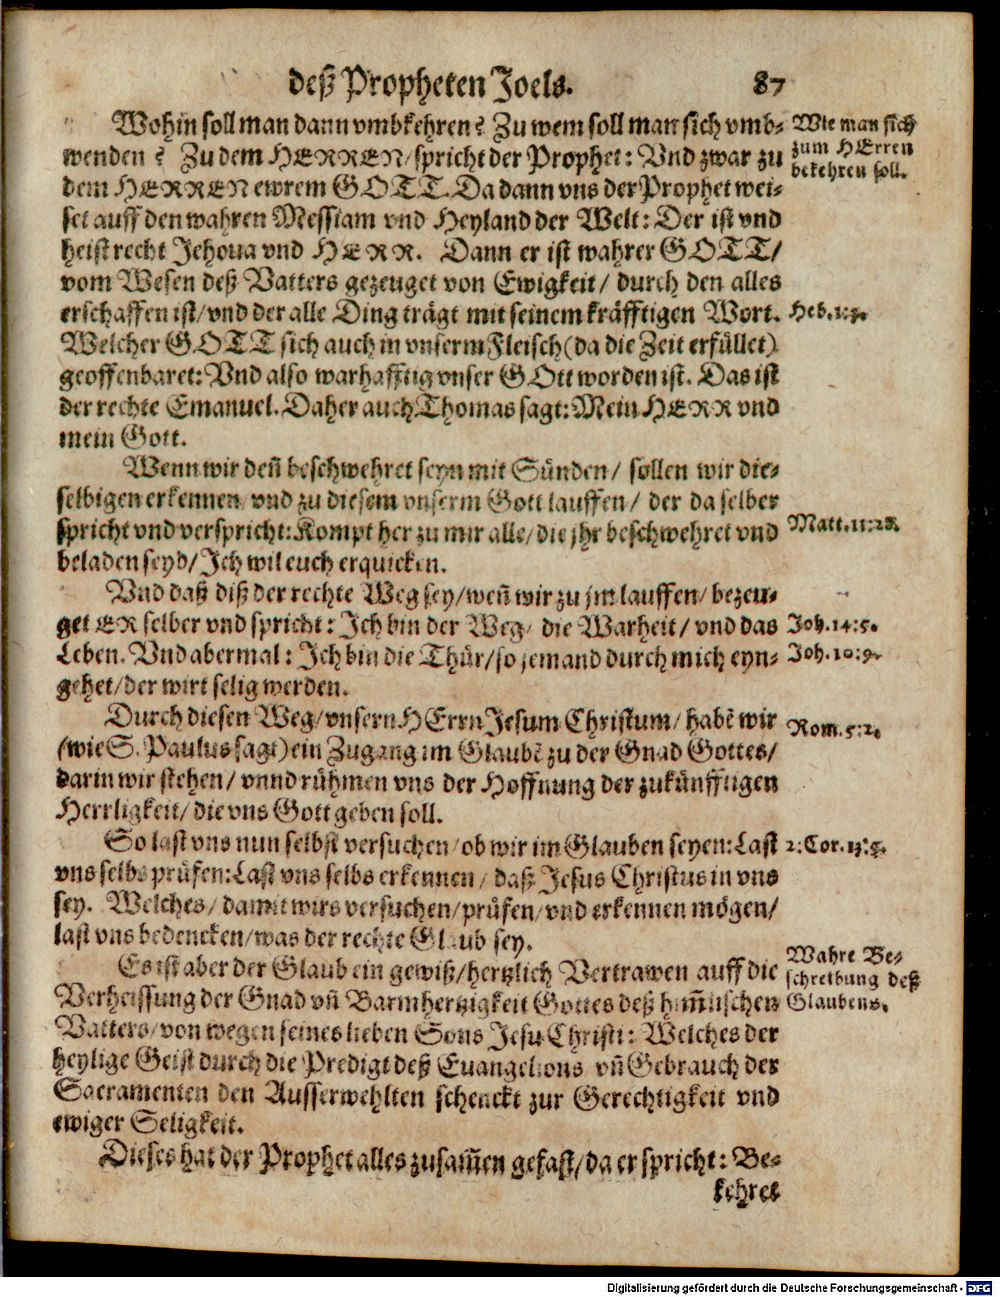 deß Propheten Joels. 87
Wohin soll man dann vmbkehren? Zu wem soll man sich vmb-
wenden? Zu dem HERREN/ spricht der Prophet: Vnd zwar zu
dem HERREN ewrem GOTT. Da dann vns der Prophet wei-
set auff den wahren Messiam vnd Heyland der Welt: Der ist vnd
heist recht Jehoua vnd HERR. Dann er ist wahrer GOTT/
vom Wesen deß Vatters gezeuget von Ewigkeit/ durch den alles
erschaffen ist/ vnd der alle Ding trägt mit seinem kräfftigen Wort.
Welcher GOTT sich auch in vnserm Fleisch (da die Zeit erfüllet)
geoffenbaret: Vnd also warhafftig vnser GOtt worden ist. Das ist
der rechte Emanuel. Daher auch Thomas sagt: Mein HERR vnd
mein Gott.
Wenn wir deñ beschwehret seyn mit Sünden/ sollen wir die-
selbigen erkennen vnd zu diesem vnserm Gott lauffen/ der da selber
spricht vnd verspricht: Kompt her zu mir alle/ die jhr beschwehret vnd
beladen seyd/ Ich wil euch erquicken.
Vnd daß diß der rechte Weg sey/ weñ wir zu jm lauffen/ bezeu-
get ER selber vnd spricht: Ich bin der Weg/ die Warheit/ vnd das
Leben. Vnd abermal: Ich bin die Thür/ so jemand durch mich eyn-
gehet/ der wirt selig werden.
Durch diesen Weg/ vnsern HErrn Jesum Christum/ habẽ wir
(wie S. Paulus sagt) ein Zugang im Glaubẽ zu der Gnad Gottes/
darin wir stehen/ vnnd rühmen vns der Hoffnung der zukünfftigen
Herrligkeit/ die vns Gott geben soll.
So last vns nun selbst versuchen/ ob wir im Glauben seyen: Last
vns selbs prüfen: Last vns selbs erkennen/ daß Jesus Christus in vns
sey. Welches/ damit wirs versuchen/ prüfen/ vnd erkennen mögen/
last vns bedencken/ was der rechte Glaub sey.
Es ist aber der Glaub ein gewiß/ hertzlich Vertrawen auff die
Verheissung der Gnad vñ Barmhertzigkeit Gottes deß him̃lischen
Vatters/ von wegen seines lieben Sons Jesu Christi: Welches der
heylige Geist durch die Predigt deß Euangelions vñ Gebrauch der
Sacramenten den Ausserwehlten schenckt zur Gerechtigkeit vnd
ewiger Seligkeit.
Dieses hat der Prophet alles zusam̃en gefast/ da er spricht: Be-
kehret
Wie man sich
zum HErren
bekehren soll.
Heb. 1:3.
Matt. 11:28.
Joh. 14:5.
Joh. 10:9.
Rom. 5:2.
2. Cor. 13:5.
Wahre Be-
schreibung deß
Glaubens.
Digitalisierung gefördert durch die Deutsche Forschungsgemeinschaft - DFG